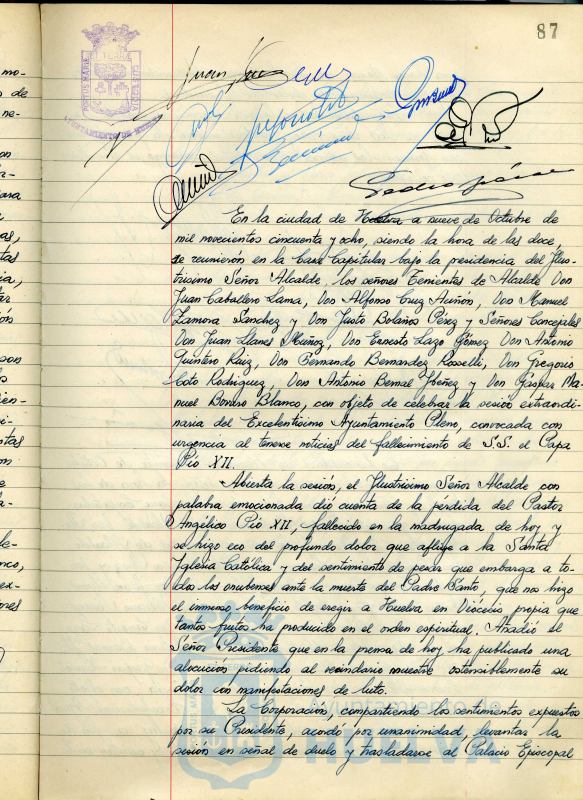 87
PORTUS MARIS ET TERRAE CUSTODIA
AYUNTAMIENTO DE HUELVA
En la ciudad de Huelva a nueve de Octubre de
mil novecientos cincuenta y ocho, siendo la hora de las doce,
se reunieron en la Casa Capitular bajo la presidencia del Ilus-
trisimo Señor Alcalde, los señores Tenientes de Alcalde Don
Juan Caballero Lama, Don Alfonso Cruz Auñón, Don Manuel
Zamora Sánchez y Don Justo Bolaños Pérez y Señores Concejales
Don Juan Llanes Muñoz, Don Ernesto Lazo Gómez Don Antonio
Quintero Ruiz, Don Bernardo Bernardez Rosselli, Don Gregorio
Coto Rodriguez, Don Antonio Bernal Yboñez y Don Gaspar Ma-
nuel Borrero Blanco, con objeto de celebrar la sesión extraordi-
naria del Excelentísimo Ayuntamiento Pleno, convocada con
urgencia al tenerse noticias del fallecimiento de S.S. el Papa
Pío XII.
Abierta la sesión, el Ilustrisimo Señor Alcalde con
palabra emocionada dió cuenta de la pérdida del Pastor
Angélico Pío XII, fallecido en la madrugada de hoy y
se hizo eco del profundo dolor que aflige a la Santa
Iglesia Católica y del sentimiento de pesar que embarga a to-
dos los onubenses ante la muerte del Padre Santo, que nos hizo
el inmenso beneficio de eregir a Huelva en Diocesis propia que
tantos frutos ha producido en el orden espiritual. Añadió el
Señor Presidente que en la prensa de hoy ha publicado una
alocución pidiendo al vecindario muestre ostensiblemente su
dolor con manifestaciones de luto.
La Corporación, compartiendo los sentimientos expuestos
por su Presidente, acordó por unanimidad, levantar la
sesión en señal de duelo y trasladarse al Palacio Episcopal